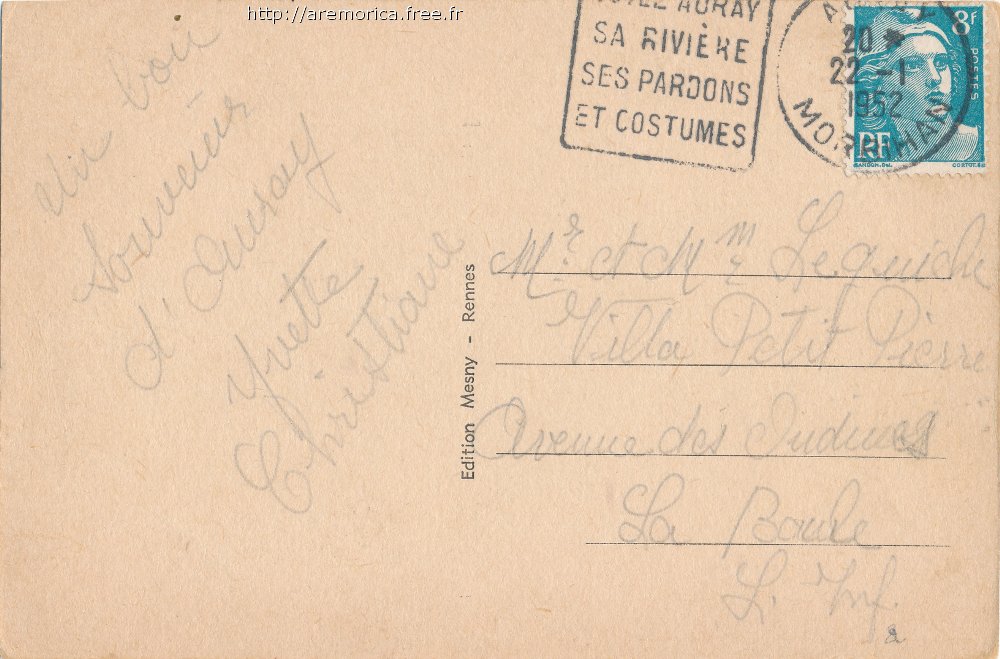 http://aremorica.free.fr
AURAY
SA RIVIÈRE
SES PARDONS
ET COSTUMES
20
22 - 1
1952
MORBIHAN
8F
POSTES
RF
GANDON.DEL.
CORTOT.SC
Un bon
Souvenir
d'Auray
Yvette
Christiane
Edition Mesny - Rennes
Mr et Mm
Villa Petit Pierre
Avenue des Ondines
La Baule
L. Inf